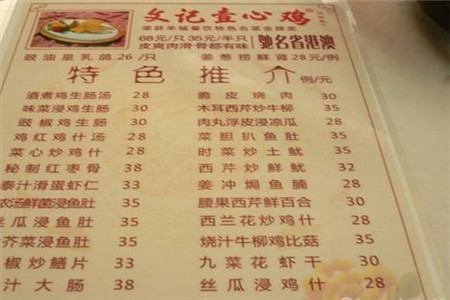 文记壹心鸡
荣获羊城餐饮特色名菜金牌奖
68元/只 35元/半只
皮爽肉滑骨都有味
驰名省港澳
豉油皇乳鸽 26/只 姜葱捞鲜肾 28元/例
特色推介 例/元
酒煮鸡生肠 28 脆皮烧肉 30
味菜浸鸡生肠 30 木耳西芹炒牛柳 35
豉椒鸡生肠 30 肉丸浮皮浸凉瓜 28
鸡红鸡什汤 28 菜胆扒鱼肚 30
菜心炒鸡什 28 时菜炒土鱿 35
秘制红枣骨 38 西芹炒鲜鱿 32
泰汁滑蛋虾仁 33 姜冲焗鱼腩 28
农场鲜菌浸鱼肚 30 腰果西芹鲜百合 30
丝瓜浸鱼肚 30 西兰花炒鸡什 28
芥菜浸鱼肚 30 烧汁牛柳鸡比菇 35
椒炒鳝片 33 九菜花虾干 30
汁大肠 38 丝瓜浸鸡什 28